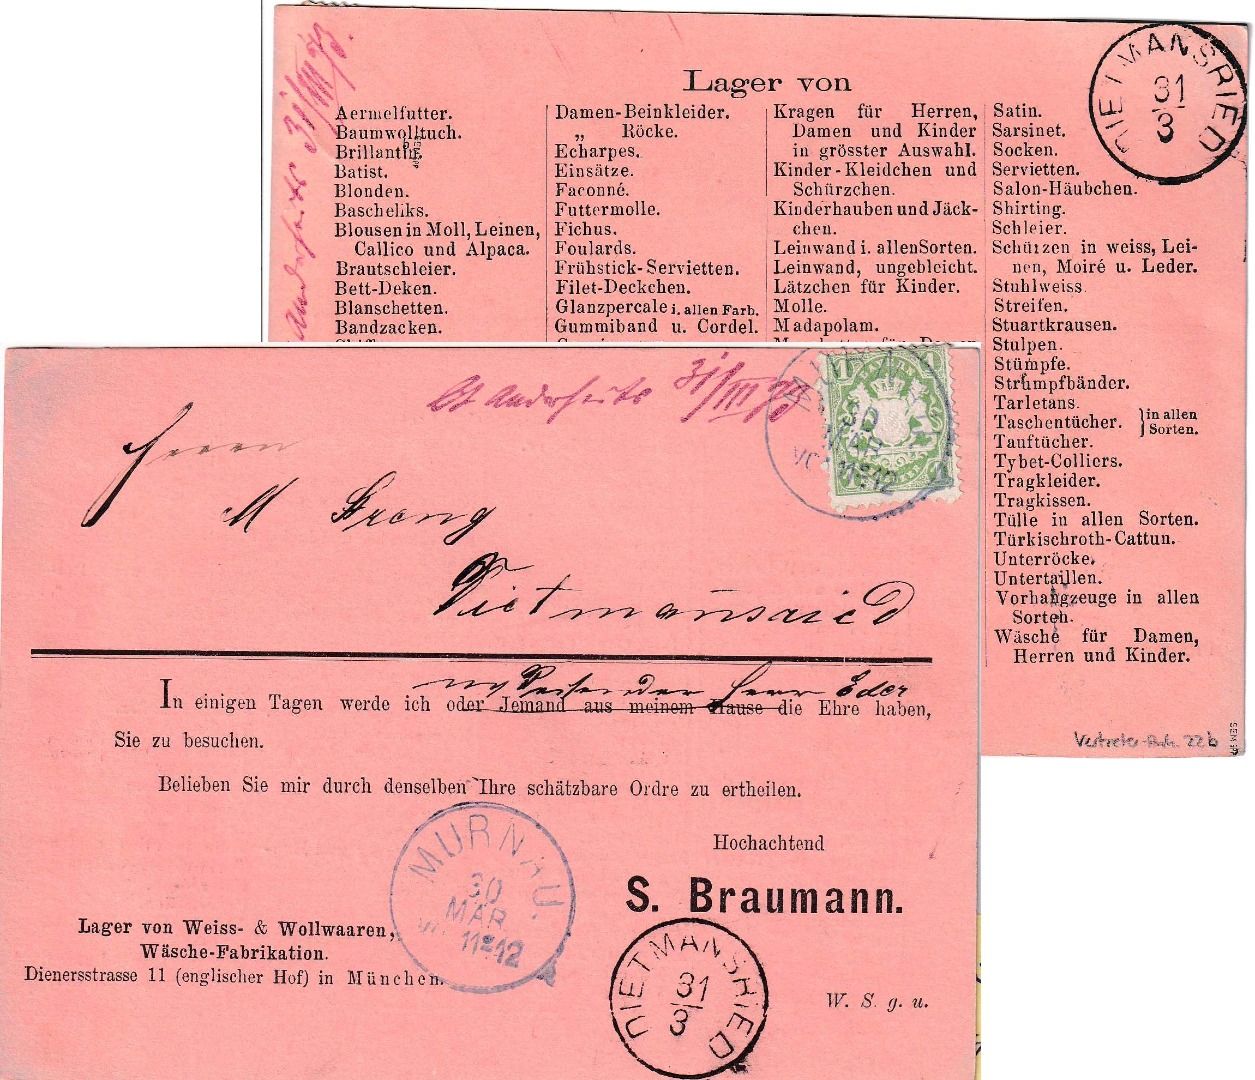 Lager von
Aermelfutter.
Baumwolltuch.
Brillantin.
Batist.
Blonden.
Bascheliks.
Blousen in Moll, Leinen,
Callico und Alpaca.
Brautschleier.
Bett-Deken.
Blanschetten.
Bandzacken.
Damen-Beinkleider.
„ Röcke.
Echarpes.
Einsätze.
Façonné.
Futtermolle.
Fichus.
Foulards.
Frühstick-Servietten.
Filet-Deckchen.
Glanzpercale i. allen Farb.
Gummiband u. Cordel.
Kragen für Herren,
Damen und Kinder
in grösster Auswahl.
Kinder-Kleidchen und
Schürzchen.
Kinderhauben und Jäck-
chen.
Leinwand i. allen Sorten.
Leinwand, ungebleicht.
Lätzchen für Kinder.
Molle.
Madapolam.
Satin.
Sarsinet.
Socken.
Servietten.
Salon-Häubchen.
Shirting.
Schleier.
Schützen in weiss, Lei-
nen, Moiré u. Leder.
Stuhlweiss.
Streifen.
Stuartkrausen.
Stulpen.
Stümpfe.
Strumpfbänder.
Tarletans.
Taschentücher.
Tauftücher.
in allen
Sorten.
Tybet-Colliers.
Tragkleider.
Tragkissen.
Tülle in allen Sorten.
Türkischroth-Cattun.
Unterröcke.
Untertaillen.
Vorhangzeuge in allen
Sorten.
Wäsche für Damen,
Herren und Kinder.
DIETMANSRIED
31
3
22b
Anderseits 31/III 73.
Anderseits 31/III 73
1
30
MAR
11 12
Herrn
M Strong
Dietmansried
Reisender Herr Eder
In einigen Tagen werde ich oder Jemand aus meinem Hause die Ehre haben,
Sie zu besuchen.
Belieben Sie mir durch denselben Ihre schätzbare Ordre zu ertheilen.
Hochachtend
S. Braumann.
MURNAU.
30
MAR
11 12
Lager von Weiss- & Wollwaaren,
Wäsche-Fabrikation.
Dienersstrasse 11 (englischer Hof) in München.
DIETMANSRIED
31
3
W. S. g. u.